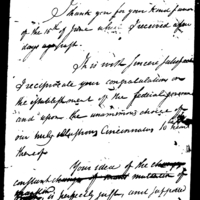 Thank you for your kind favor
of the 10th of June which I received a few
days ago past.
It is with sincere satisfaction
I reciprocate your congratulations on
the establishment of the federal govern
and upon the unanimous choice of
our truly illustrious Cincinnatus to head
thereof
Your idea of the
constant change of mutation of
is perfectly just, and supported